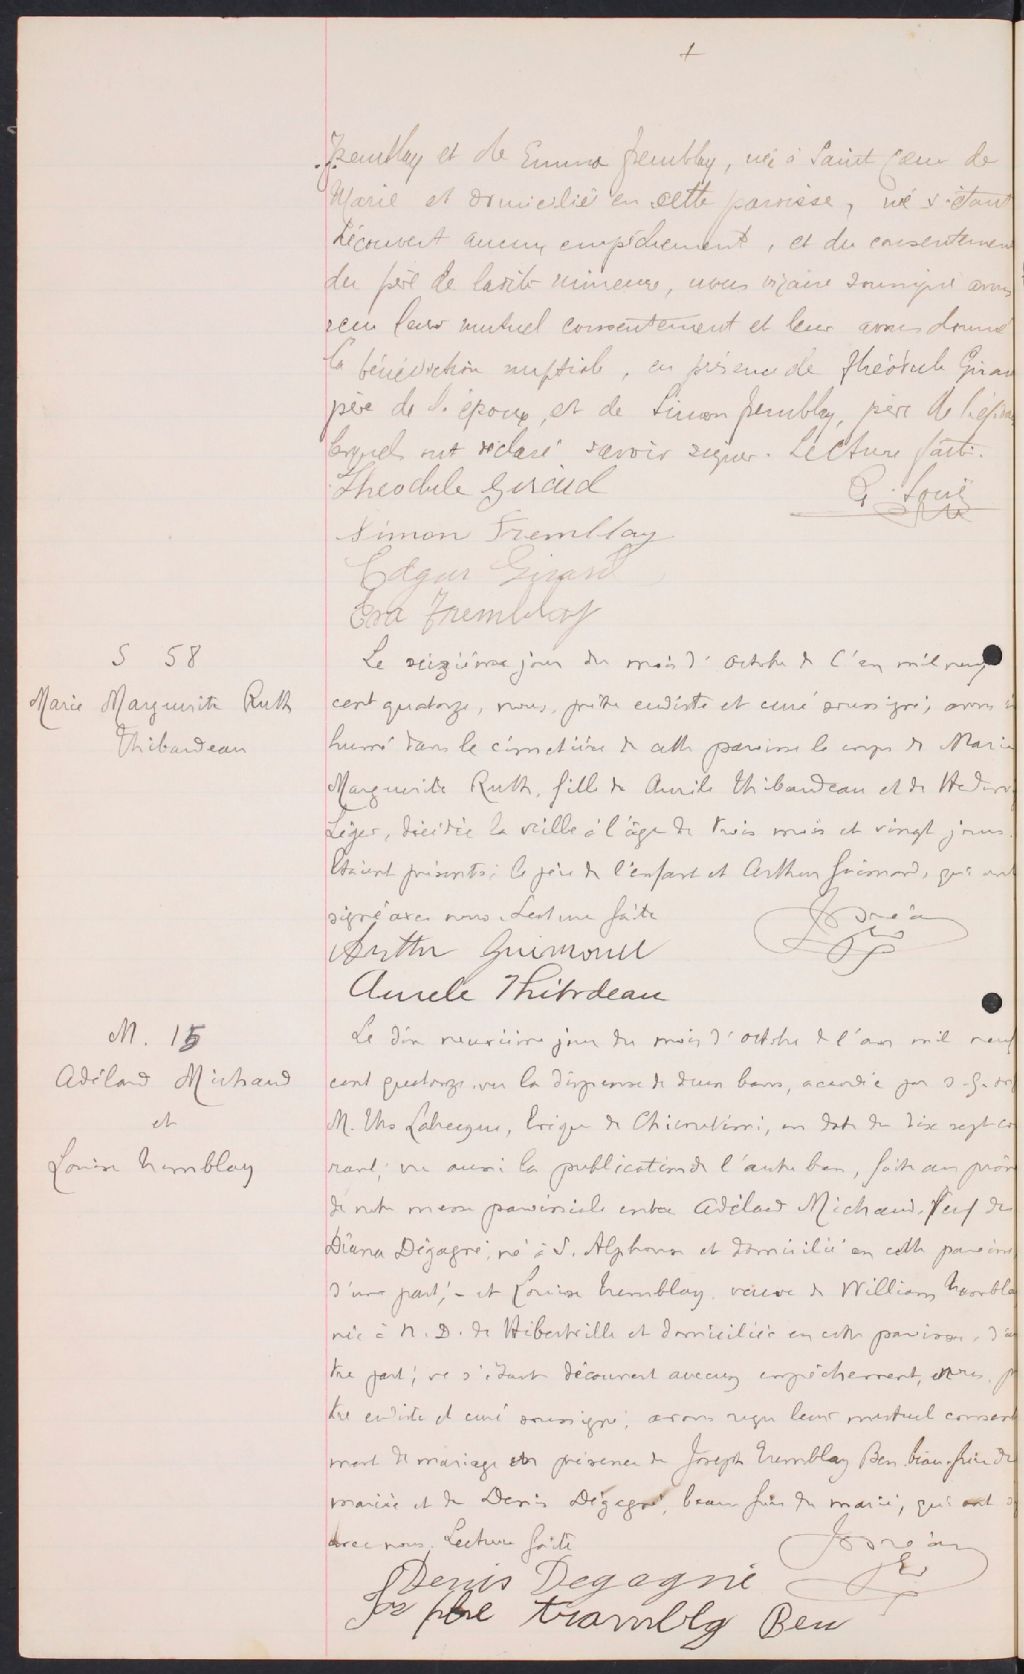 Tremblay et de Emma Tremblay, né à Saint Cœur de
Marie et domicilié en cette paroisse, né s'étant
découvert aucun empêchement, et du consentement
du père de ladite mineure, nous vicaire soussigné avons
reçu leur mutuel consentement et leur avons donné
la bénédiction nuptiale, en présence de Théodule Girard
père de l'époux, et de Simon Tremblay, père de l'épouse
lesquels ont déclaré savoir signer. Lecture faite.
Théodule Girard
Simon Tremblay
Edgar Girard
Eva Tremblay
S 58
Marie Marguerite Ruth
Thibaudeau
Le seizième jour du mois d'octobre de l'an mil neuf
cent quatorze, nous, prêtre eudiste et curé soussigné, avons in
humé dans le cimetière de cette paroisse le corps de Marie
Marguerite Ruth, fille de Aurèle Thibaudeau et de
Léger, décédée la veille à l'âge de trois mois et vingt jours.
Etaient présents: le père de l'enfant et Arthur Guimond, qui ont
signé avec nous. Lecture faite
Arthur Guimond
Aurele Thibodeau
M. 15
Adélard Michaud
et
Louise Tremblay
Le dix neuvième jour du mois d'octobre de l'an mil neuf
cent quatorze vu la dispense de deux bans, accordée par S. G.
M. Ths Labrecque, Evêque de Chicoutimi, en date du dix sept cou
rant; vu aussi la publication de l'autre ban, faite au prône
de notre messe paroissiale entre Adélard Michaud, veuf de
Diana Dégagné, né à S. Alphonse et domicilié en cette paroisse
d'une part; - et Louise Tremblay veuve de William Trembla
née à N. D. de Hébertville et domiciliée en cette paroisse, d'au
tre part; ne s'étant découvert aucun empêchement, nous, prê
tre eudiste et curé soussigné, avons reçu leur mutuel consente
ment de mariage en présence de Joseph Tremblay Ben beau-frère de
mariée et de Denis Dégagné, beau frère du marié, qui ont
avec nous. Lecture faite
Denis Degagné
Tramblg Ben